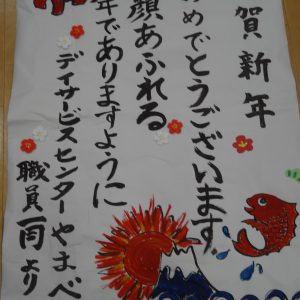 賀新年
めでとうございます。
顔あふれる
年でありますように
デイサービスセンターやまべ
職員一同より